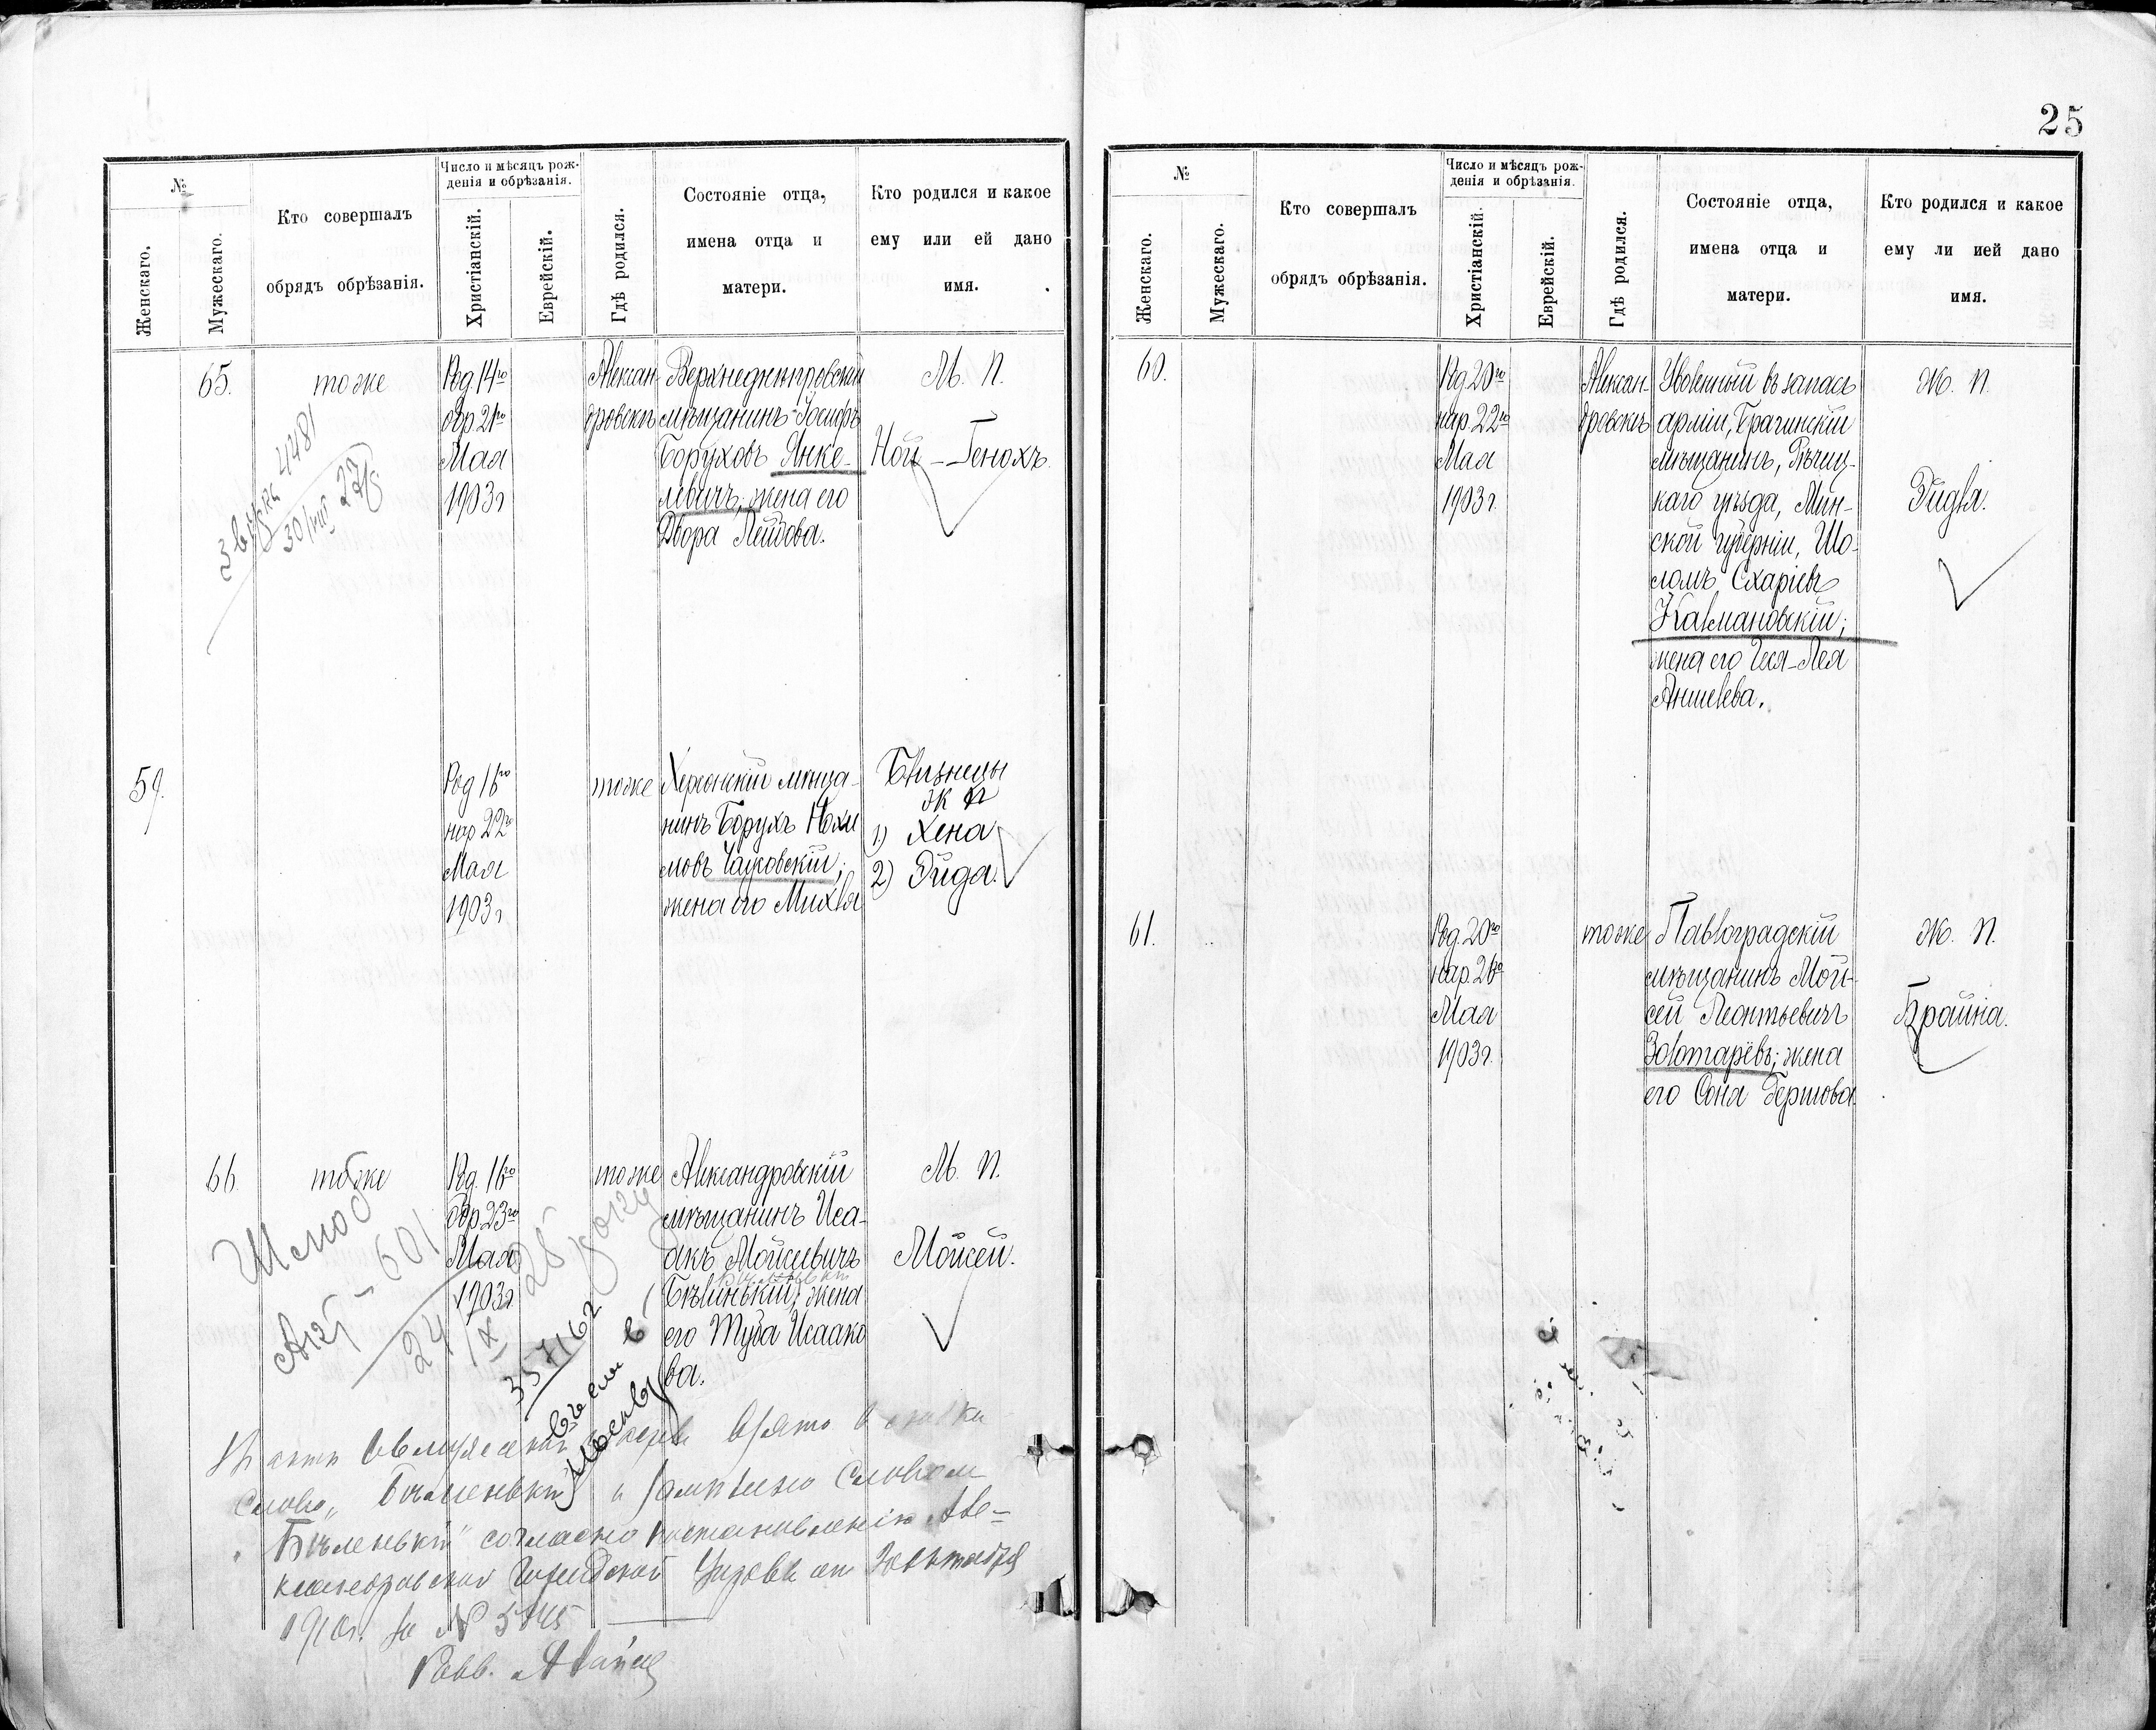 №
Женскаго.
Мужескаго.
Кто совершалъ
обрядъ обрѣзанія.
Число и мѣсяцъ рож-
денія и обрѣзанія.
Христіанскій.
Еврейскій.
Гдѣ родился.
Состояніе отца,
имена отца и
матери.
Кто родился и какое
ему или ей дано
имя.
65.
тоже
Род. 14го
обр. 21го
Мая
1903 г
Алексан-
дровскъ
Верхнеднѣпровскій
мѣщанинъ Іосифъ
Боруховъ Янке-
левичъ; жена его
Двора Лейбова.
М. П.
Ной-Генохъ.
4481
59.
Род 16го
нар 22го
Мая
1903 г
тоже
Херсонскій мѣща-
нинъ Борухъ Нохи
мовъ
жена его Михля
Близнецы
Ж П
1) Хена
2) Эйда.
66.
тоже
Род. 16го
Обр. 23го
Мая
1903 г
тоже
Александровскій
мѣщанинъ Иса-
акъ Мойсеевичъ
Бѣлинькій; жена
его Туба Исаако
ва.
М. П.
Мойсей.
Акт - 601
24/IX 28 року
35762
слово
"Бѣленькій" согласно постановленію Але-
ксандровской Городской Управы от
1910 г. за № 5745
Равв.
25
№
Женскаго.
Мужескаго.
Кто совершалъ
обрядъ обрѣзанія.
Число и мѣсяцъ рож-
денія и обрѣзанія.
Христіанскій.
Еврейскій.
Гдѣ родился.
Состояніе отца,
имена отца и
матери.
Кто родился и какое
ему ли ией дано
имя.
60.
Род 20го
нар. 22го
Мая
1903 г.
Алексан-
дровскъ
Уволенный въ запасъ
арміи, Брагинскій
мѣщанинъ, Рѣчиц-
каго уѣзда, Мин-
ской губерніи, Шо-
ломъ Схаріевъ
Калмановскій;
жена его Чеся-Лея
Аншелева.
Ж. П.
Эйдля.
61.
Род. 20го
нар. 26го
Мая
1903 г.
тоже
Павлоградскій
мѣщанинъ Мой-
сей Леонтьевичъ
Золотарёвъ; жена
его Соня Гершова.
Ж. П.
Брайна.